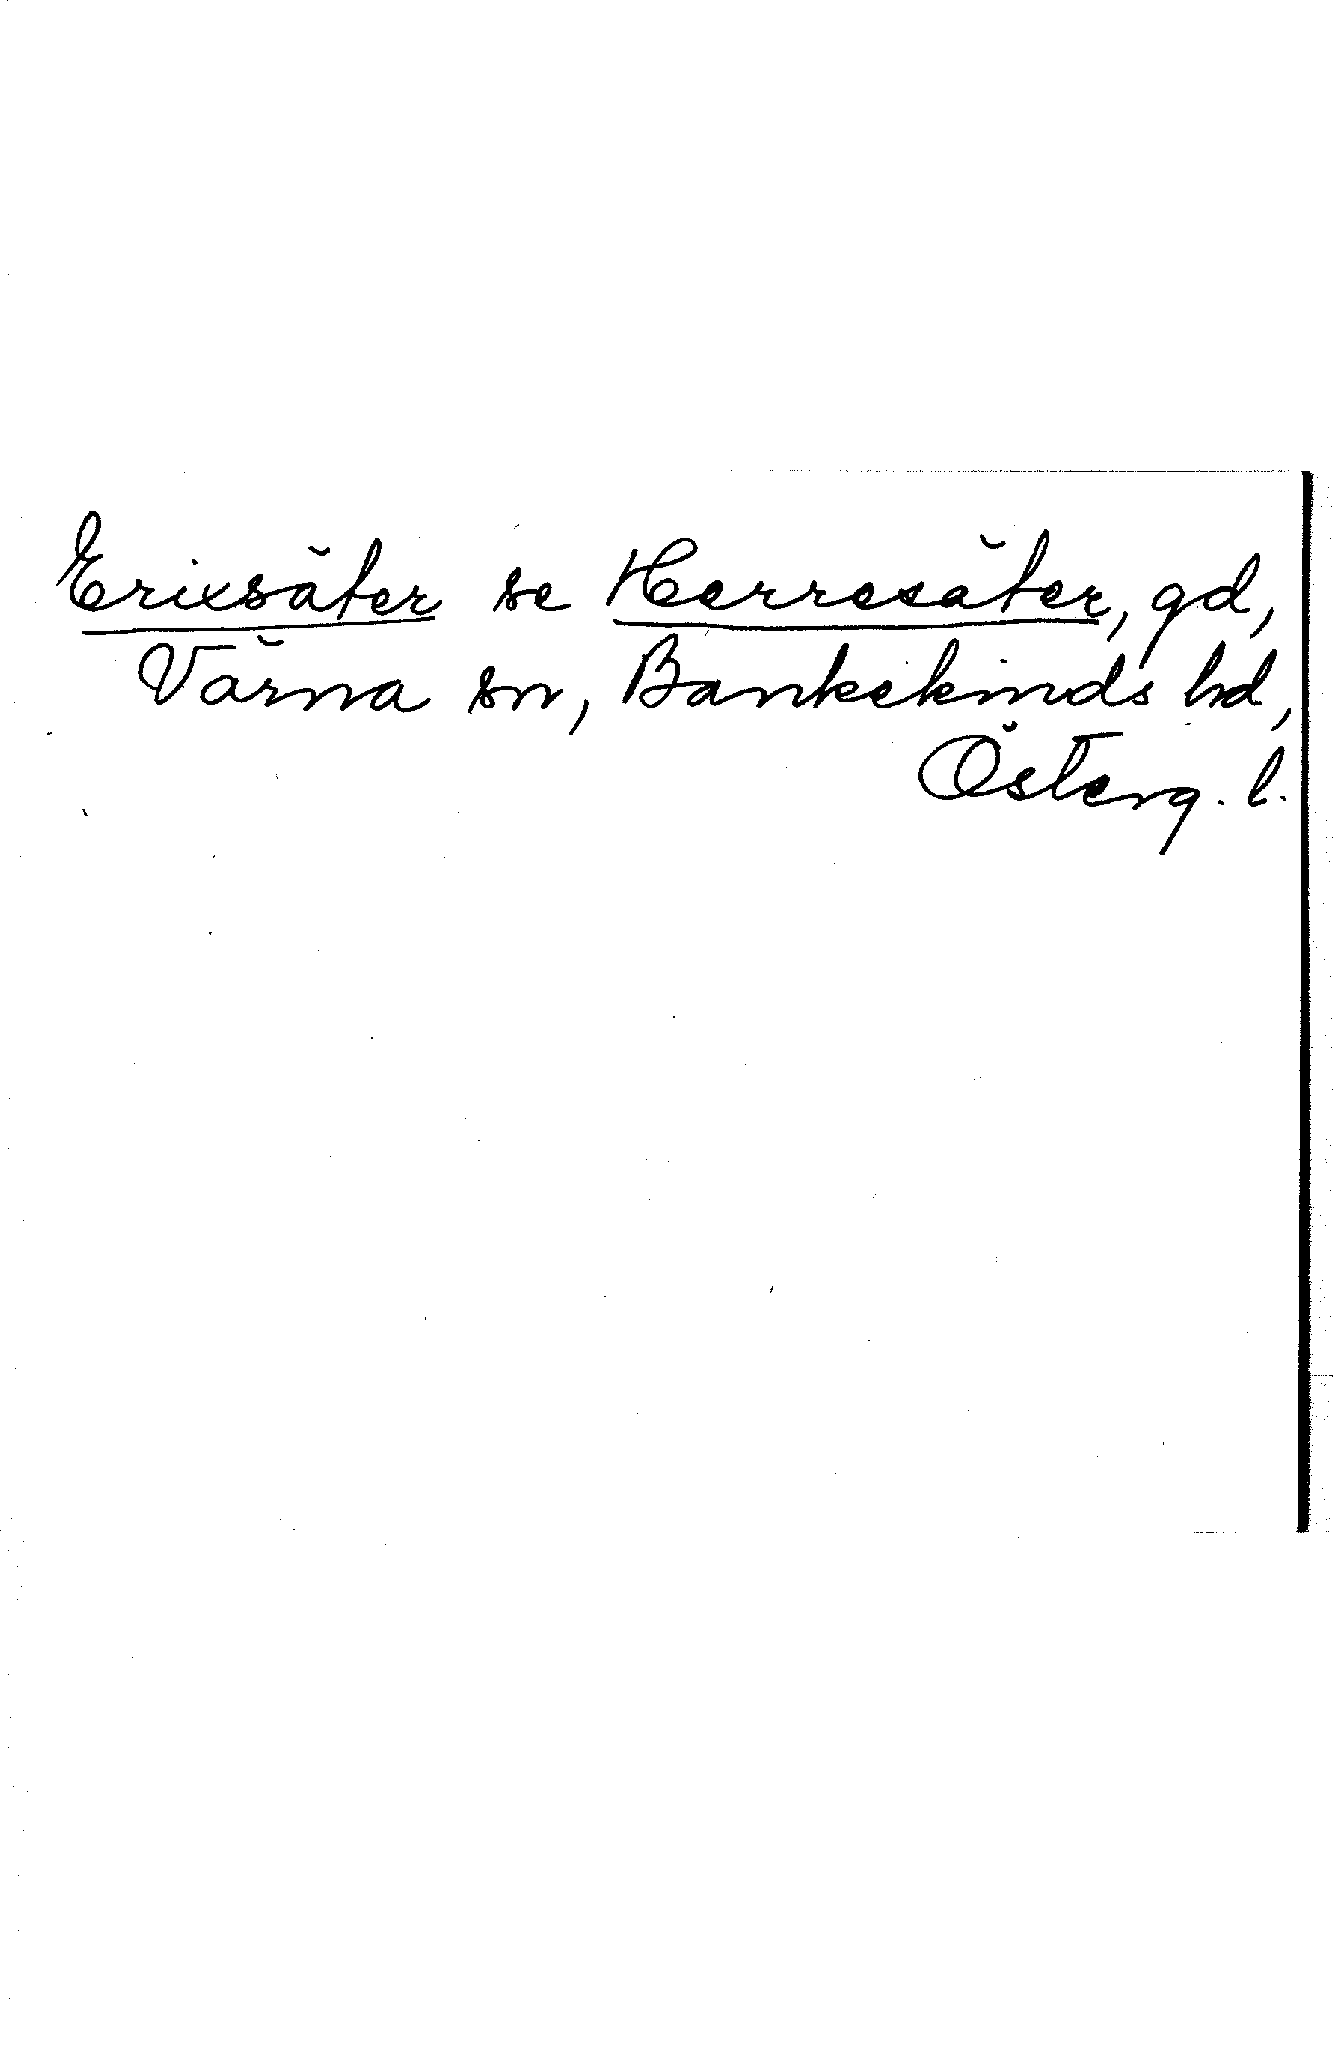 Erixsäter se Herresäter, gd,
Värna sn, Bankekinds hd,
Österg. l.